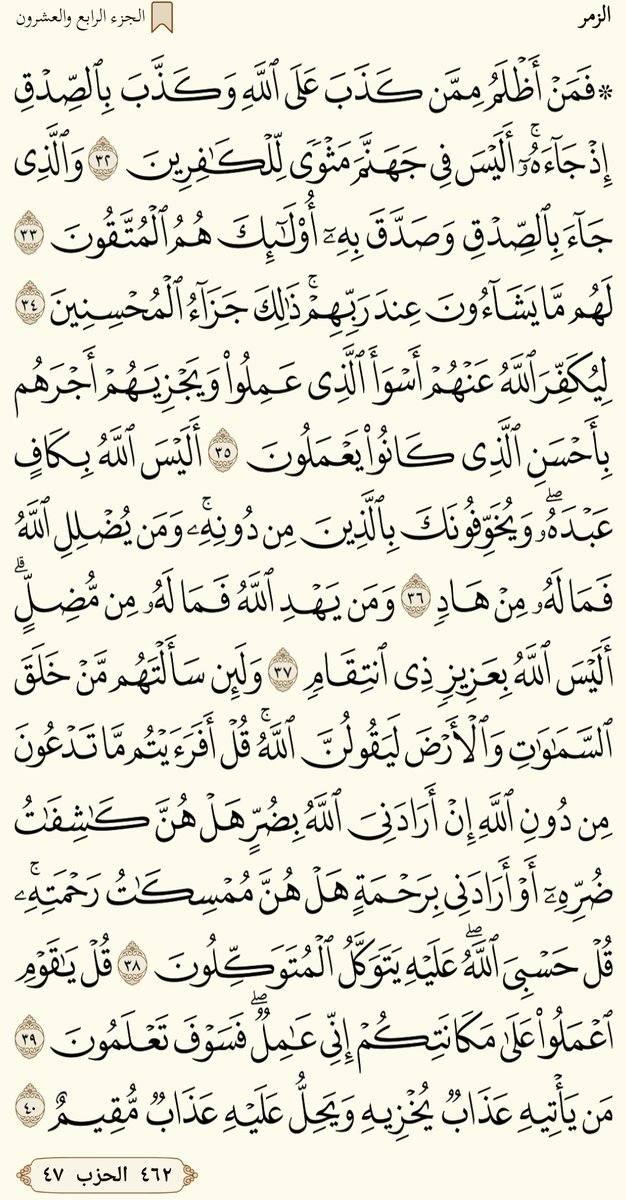 الزمر
الجزء الرابع والعشرون
۞ فَمَنْ أَظْلَمُ مِمَّن كَذَبَ عَلَى ٱللَّهِ وَكَذَّبَ بِٱلصِّدْقِ
إِذْ جَآءَهُۥٓۚ أَلَيْسَ فِى جَهَنَّمَ مَثْوًى لِّلْكَـٰفِرِينَ ٣٢ وَٱلَّذِى
جَآءَ بِٱلصِّدْقِ وَصَدَّقَ بِهِۦٓ أُو۟لَـٰٓئِكَ هُمُ ٱلْمُتَّقُونَ ٣٣
لَهُم مَّا يَشَآءُونَ عِندَ رَبِّهِمْۚ ذَٰلِكَ جَزَآءُ ٱلْمُحْسِنِينَ ٣٤
لِيُكَفِّرَ ٱللَّهُ عَنْهُمْ أَسْوَأَ ٱلَّذِى عَمِلُوا۟ وَيَجْزِيَهُمْ أَجْرَهُم
بِأَحْسَنِ ٱلَّذِى كَانُوا۟ يَعْمَلُونَ ٣٥ أَلَيْسَ ٱللَّهُ بِكَافٍ
عَبْدَهُۥۖ وَيُخَوِّفُونَكَ بِٱلَّذِينَ مِن دُونِهِۦۚ وَمَن يُضْلِلِ ٱللَّهُ
فَمَا لَهُۥ مِنْ هَادٍ ٣٦ وَمَن يَهْدِ ٱللَّهُ فَمَا لَهُۥ مِن مُّضِلٍّۗ
أَلَيْسَ ٱللَّهُ بِعَزِيزٍ ذِى ٱنتِقَامٍ ٣٧ وَلَئِن سَأَلْتَهُم مَّنْ خَلَقَ
ٱلسَّمَـٰوَٰتِ وَٱلْأَرْضَ لَيَقُولُنَّ ٱللَّهُۚ قُلْ أَفَرَءَيْتُم مَّا تَدْعُونَ
مِن دُونِ ٱللَّهِ إِنْ أَرَادَنِىَ ٱللَّهُ بِضُرٍّ هَلْ هُنَّ كَـٰشِفَـٰتُ
ضُرِّهِۦٓ أَوْ أَرَادَنِى بِرَحْمَةٍ هَلْ هُنَّ مُمْسِكَـٰتُ رَحْمَتِهِۦۚ
قُلْ حَسْبِىَ ٱللَّهُۖ عَلَيْهِ يَتَوَكَّلُ ٱلْمُتَوَكِّلُونَ ٣٨ قُلْ يَـٰقَوْمِ
ٱعْمَلُوا۟ عَلَىٰ مَكَانَتِكُمْ إِنِّى عَـٰمِلٌۖ فَسَوْفَ تَعْلَمُونَ ٣٩
مَن يَأْتِيهِ عَذَابٌ يُخْزِيهِ وَيَحِلُّ عَلَيْهِ عَذَابٌ مُّقِيمٌ ٤٠
٤٦٢ الحزب ٤٧